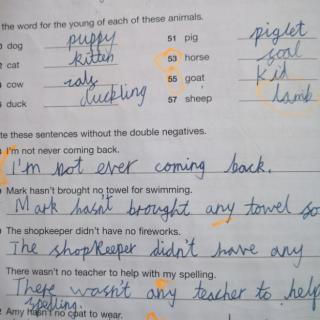 the word for the young of each of these animals.
dog puppy 51 pig piglet
cat kitten 53 horse
cow 55 goat kid
duck duckling 57 sheep lamb
te these sentences without the double negatives.
I'm not never coming back.
I'm not ever coming back.
Mark hasn't brought no towel for swimming.
Mark hasn't brought any towel
The shopkeeper didn't have no fireworks.
The shopkeeper didn't have any
There wasn't no teacher to help with my spelling.
There wasn't any teacher to help
spelling.
Amy hasn't no coat to wear.